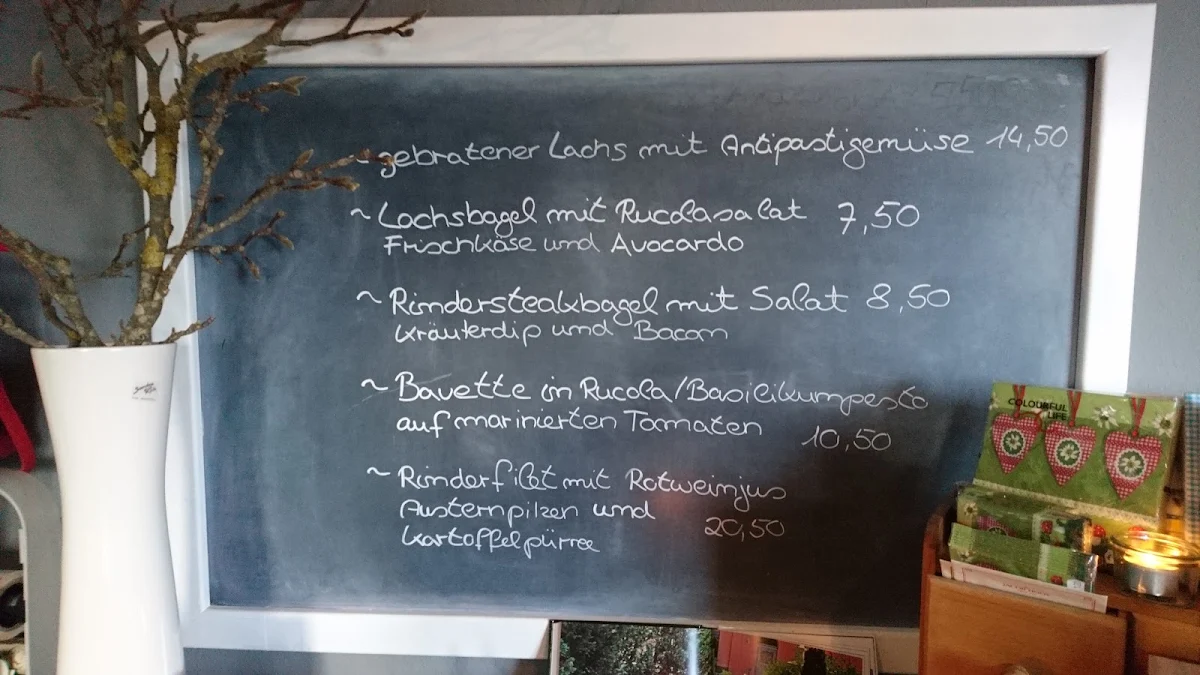 ~ gebratener Lachs mit Antipastigemüise 14,50
~ Lachsbagel mit Rucolasalat 7,50
Frischkäse und Avocardo
~ Rindersteakbagel mit Salat 8,50
Kräuterdip und Bacon
~ Bavette in Rucola/Basilikumpesto
auf marinierten Tomaten 10,50
~ Rinderfilet mit Rotweinjus
Austernpilzen und
Kartoffelpürree 20,50
COLOURFUL
LIFE